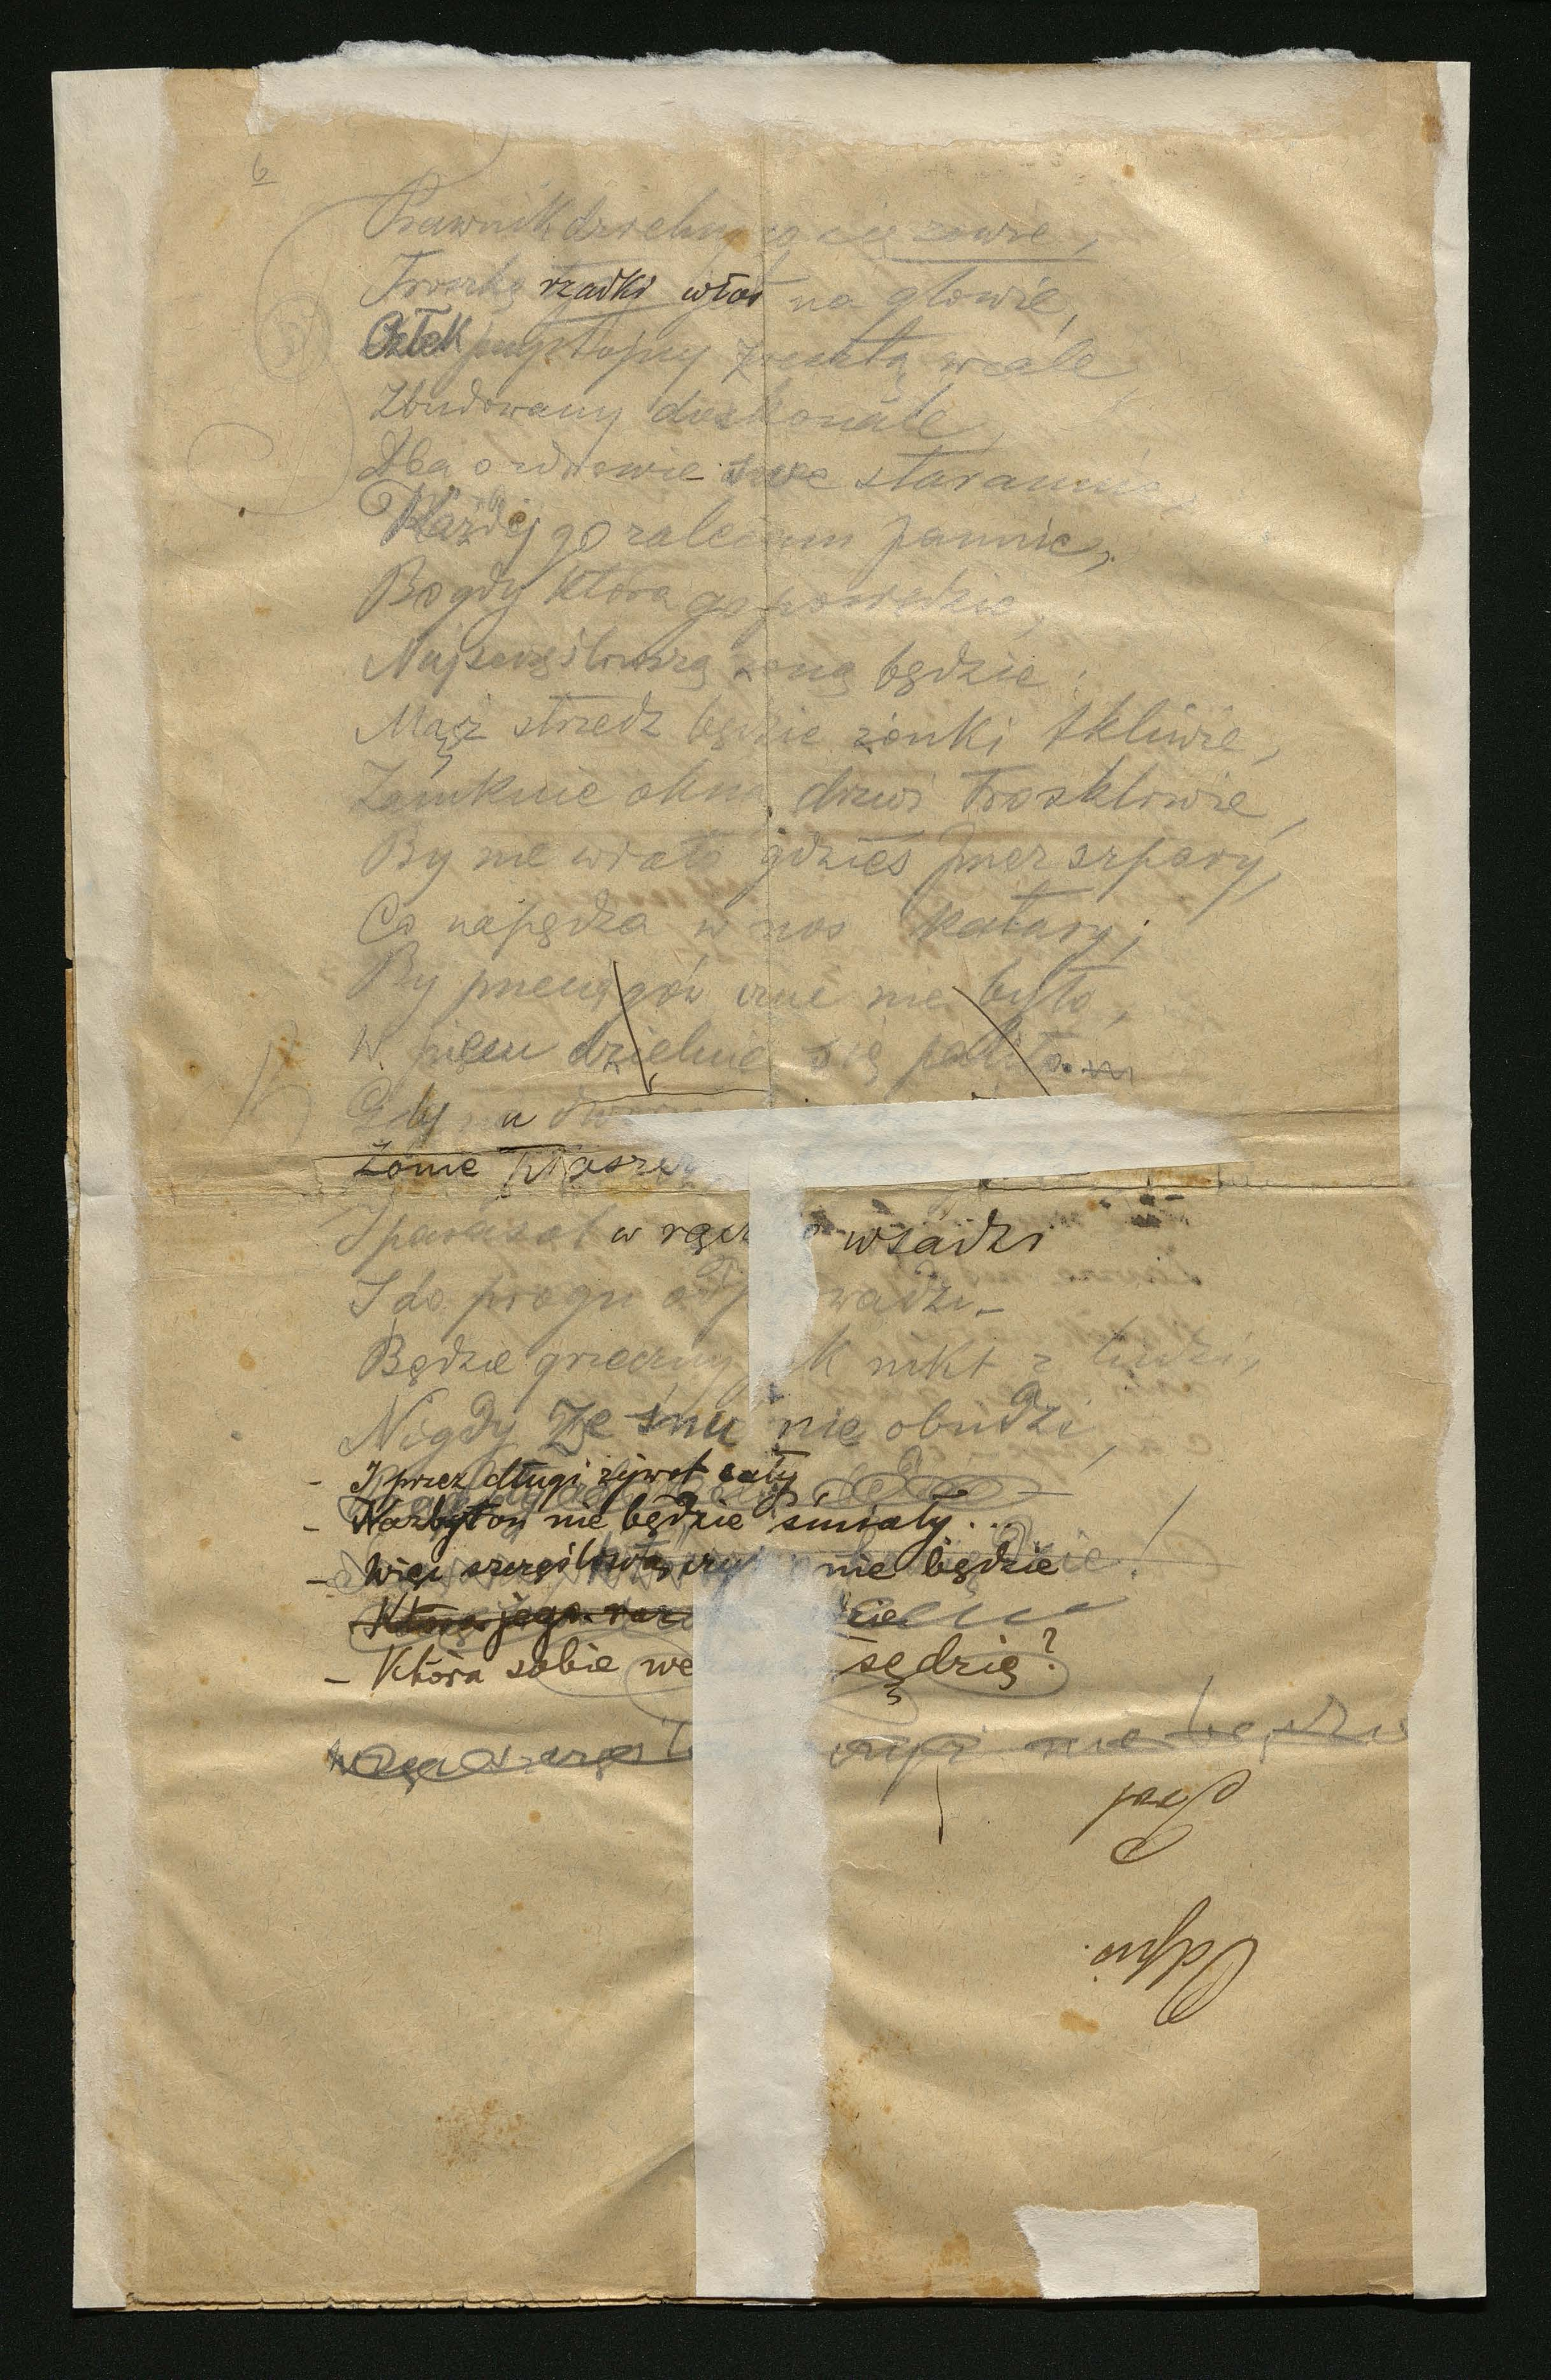 6
Prawnik dzielny co się zowie,
Troszkę rzadki włos na głowie,
Człek przystojny zresztą wcale
Zbudowany doskonale,
Dba o zdrowie swe starannie,
Każdej go zalecam pannie,
Bo gdy która go posiędzie,
Najszczęśliwszą żoną będzie:
Mąż strzedz będzie żonki tkliwie,
Zamknie okna, drzwi troskliwie,
By nie wiało gdzieś przez szpary,
Co napędza w nos katary;
By przeciągów nie było,
W piecu dzielnie się paliło.
Gdy na
Żonie płaszcz
I parasol w rącz wsadzi
I do progu odp wadzi –
Będzie grzeczny, k nikt z ludzi,
Nigdy ze snu nie obudzi,
- I przez długi żywot cały
- Nazbyt on nie będzie śmiały...
- Więc szczęśliwą czyż nie będzie
Która jego raz
- Która sobie we sędzię?
czyż nie będzie